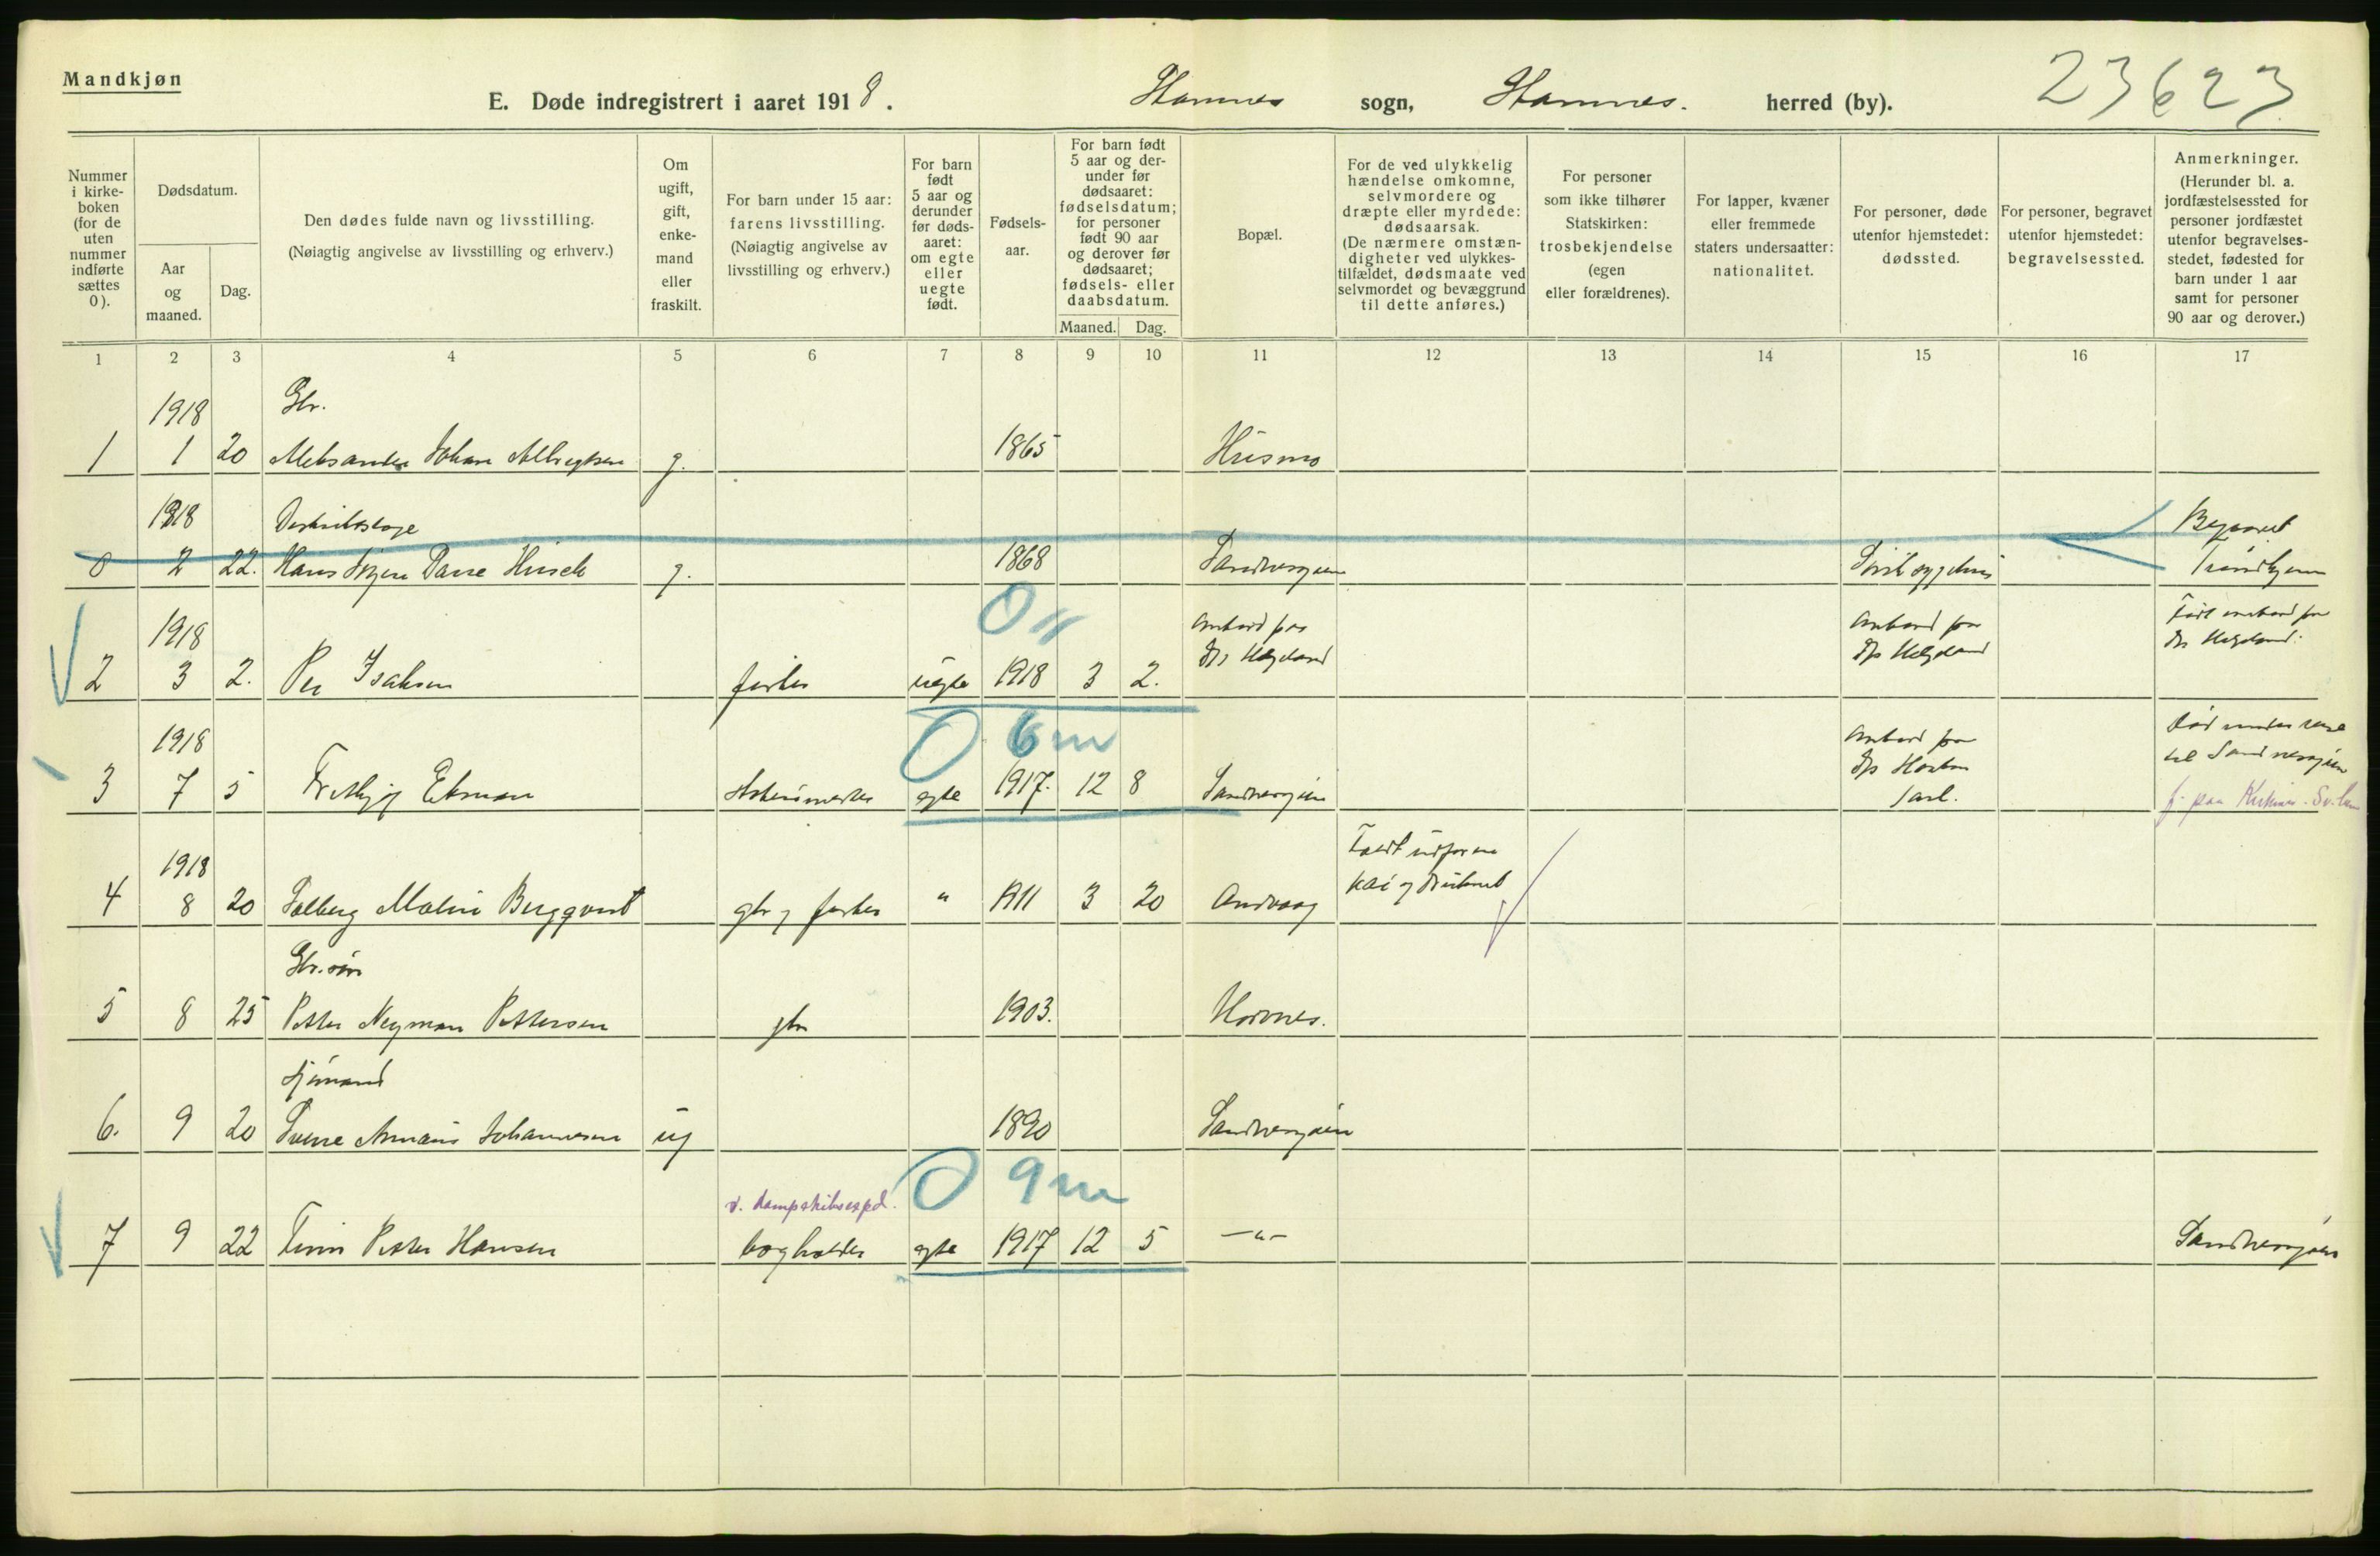 Mandkjøn
E. Døde indregistrert i aaret 1918. Stamnes sogn, Stamnes. herred (by).
23623
Nummer i kirke-boken (for de uten nummer indførte sættes 0).
Dødsdatum.
Aar og maaned.
Dag.
Den dødes fulde navn og livsstilling.
(Nøiagtig angivelse av livsstilling og erhverv.)
Om ugift, gift, enke-mand eller fraskilt.
For barn under 15 aar: farens livsstilling. (Nøiagtig angivelse av livsstilling og erhverv.)
For barn født 5 aar og derunder før døds-aaret: om egte eller uegte født.
Fødsels-aar.
For barn født 5 aar og der-under før dødsaaret: fødselsdatum; for personer født 90 aar og derover før dødsaaret; fødsels- eller daabsdatum.
Maaned. Dag.
Bopæl.
For de ved ulykkelig hændelse omkomne, selvmordere og dræpte eller myrdede: dødsaarsak. (De nærmere omstæn-digheter ved ulykkes-tilfældet, dødsmaate ved selvmordet og bevæggrund til dette anføres.)
For personer som ikke tilhører Statskirken: trosbekjendelse (egen eller forældrenes).
For lapper, kvæner eller fremmede staters undersaatter: nationalitet.
For personer, døde utenfor hjemstedet: dødssted.
For personer, begravet utenfor hjemstedet: begravelsessted.
Anmerkninger. (Herunder bl. a. jordfæstelsessted for personer jordfæstet utenfor begravelses-stedet, fødested for barn under 1 aar samt for personer 90 aar og derover.)
1 2 3 4 5 6 7 8 9 10 11 12 13 14 15 16 17
1918 Gbr.
1 1 20 Aleksander Johan Albrigtsen g. 1865 Husmo
1918 Distriktslæge Begravet
0 2 22. Hans Paare g. 1868 Sandnessjøen Trondhjem
0
1918 Ombord paa Ombord paa Født ombord paa
D/s Helgeland D/s Helgeland D/s Helgeland.
2 3 2. Per Isaksen fisker uegte 1918 3 2.
0 6 m
1918 Ombord paa Død under reise
D/s Haakon til Sandnessjøen
3 7 5 Fritjof Ekman egte 1917. 12 8 Sandnessjøen Jarl. f. paa
1918 Faldt utfor en
kai og druknet
4 8 20 Solberg Bergqvist gbr og fisker " 1911 3 20
Gbr. søn
5 8 25 Petter Neuman Pettersen gbr 1903.
Sjømand
6. 9 20 Sverre Johannesen ug 1890 Sandnessjøen
0 9 m
v. dampskibsexped.
7 9 22 Finn Petter Hansen bogholder egte 1917 12 5 —"— Sandnessjøen